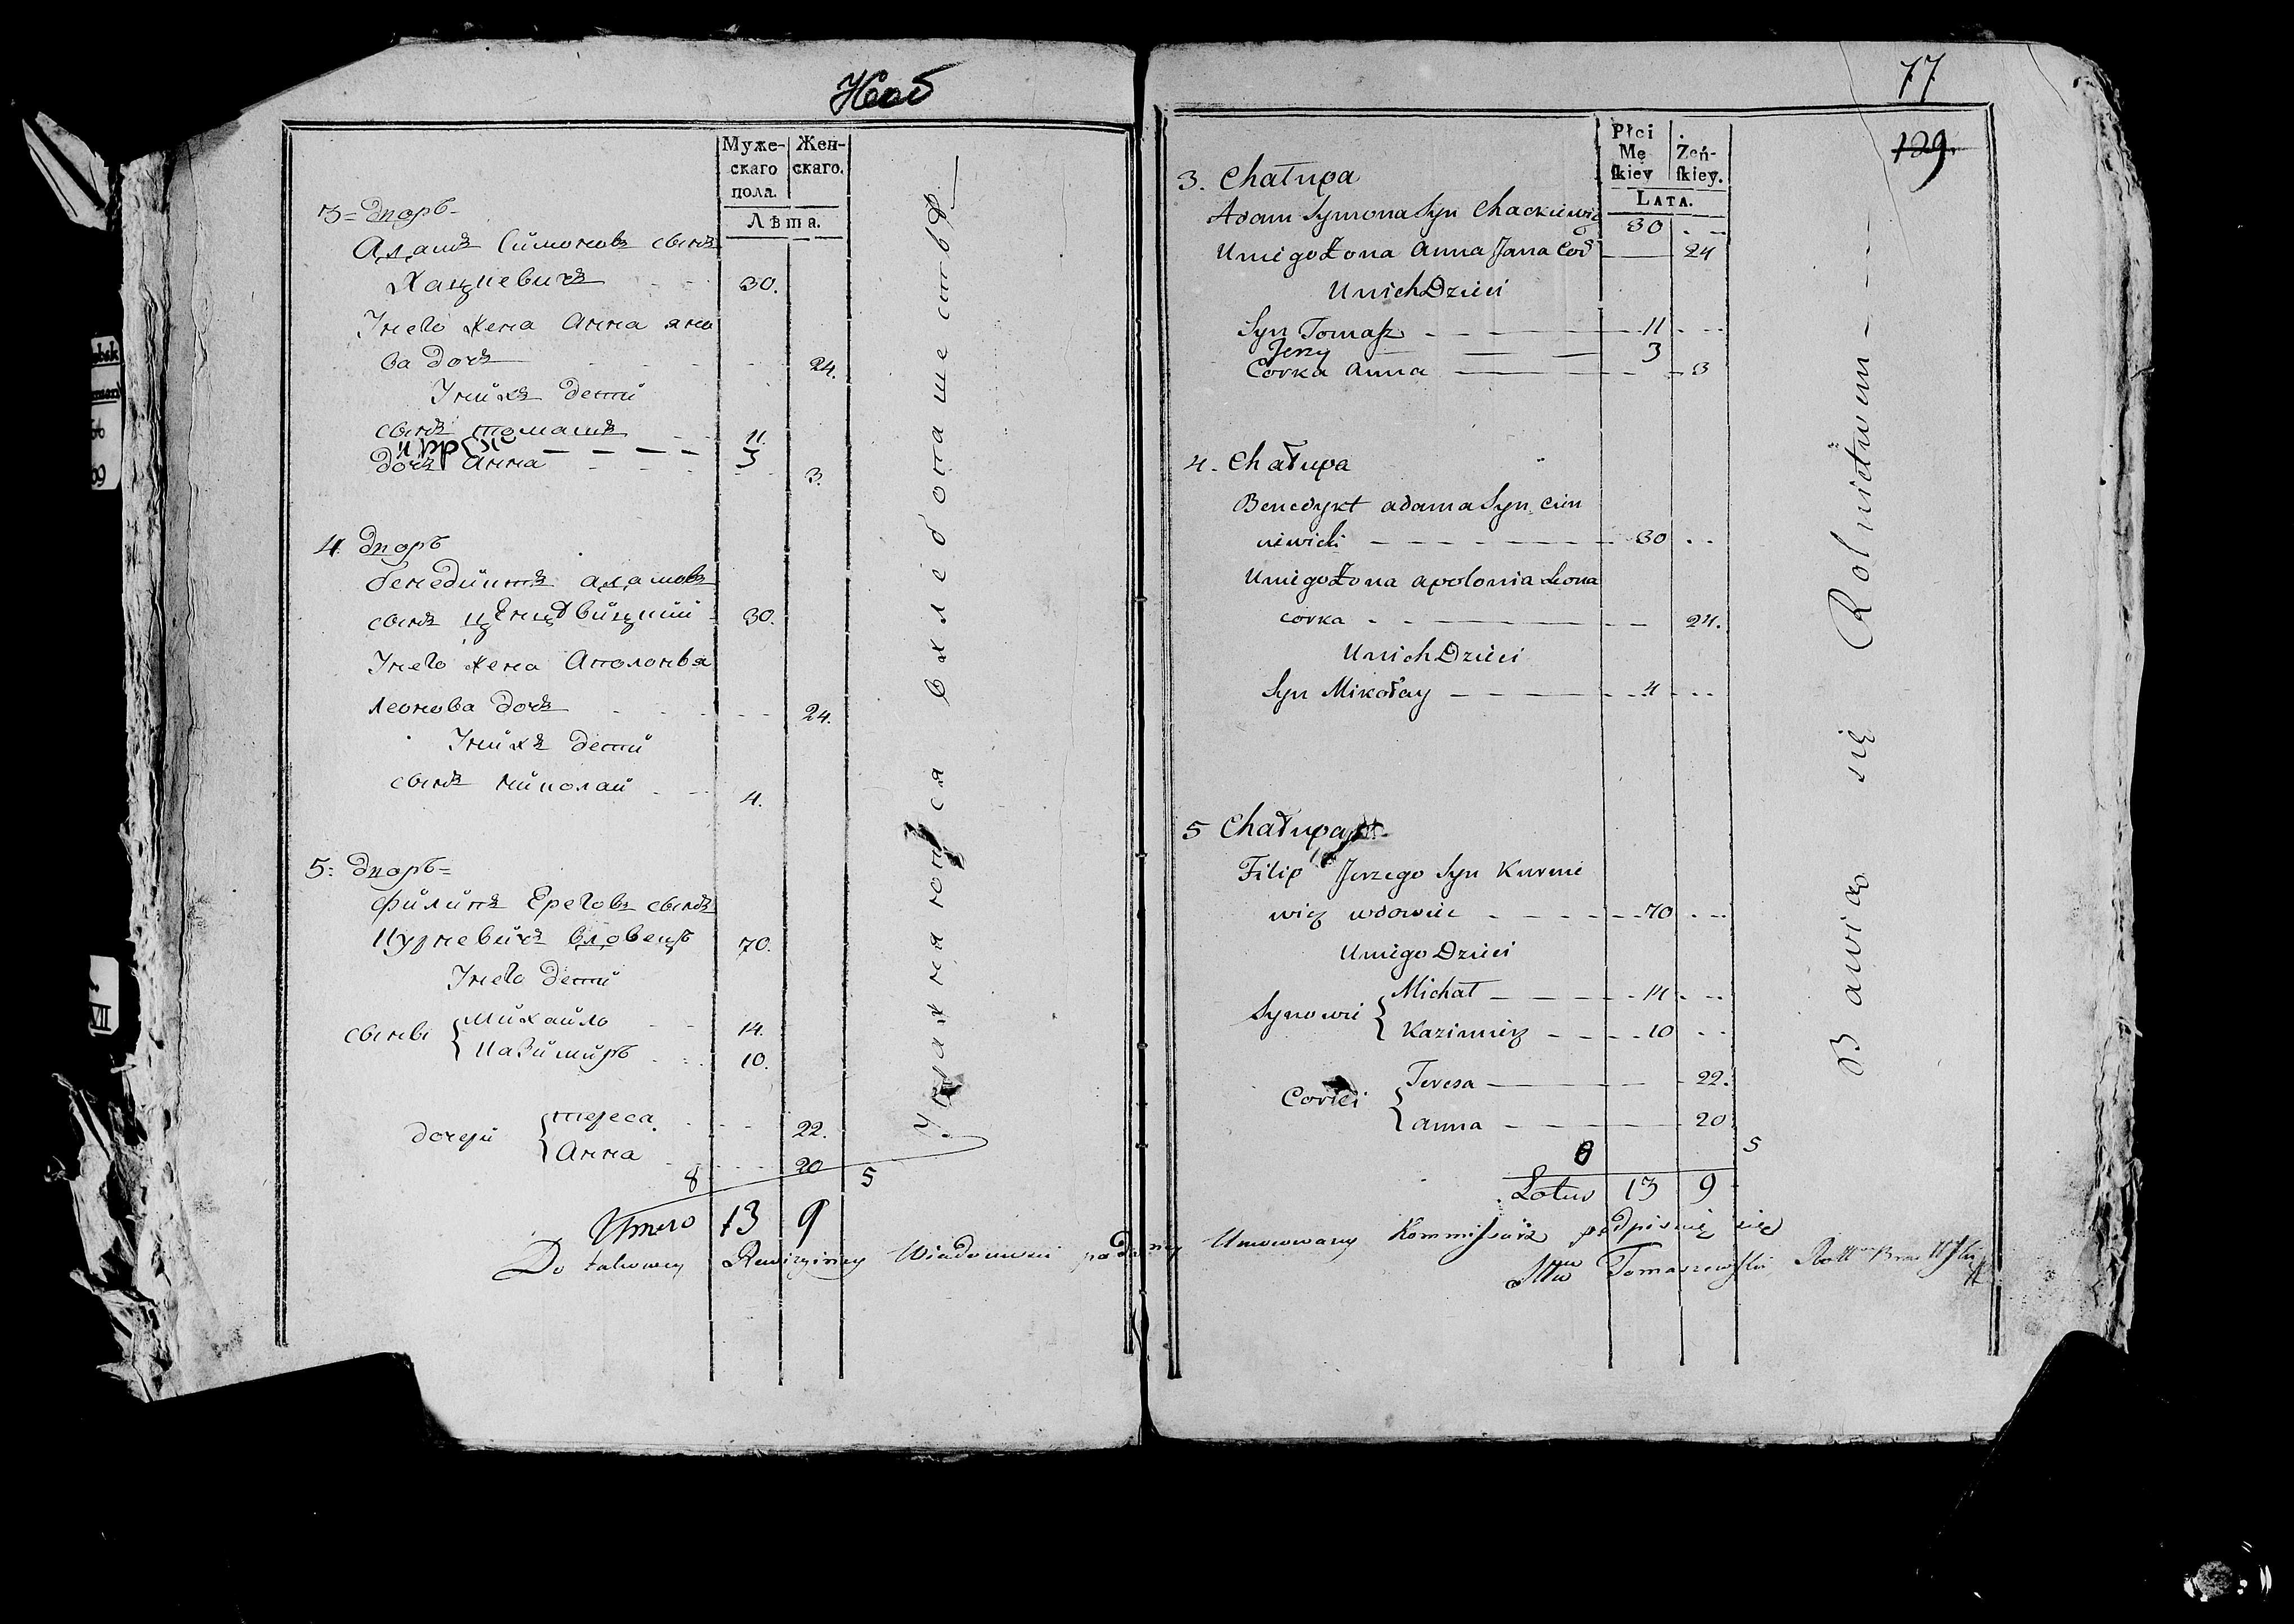 77
129
Муже-
скаго
пола.
Жен-
скаго.
Лѣта.
3= дворъ=
Адамъ Симоновъ сынъ
Хацкевичъ 30.
Унего жена Анна яно
ва дочь 24.
Унихъ дети
сынъ томашъ 11.
3
дочь Анна 3.
4. дворъ
бенедиктъ адамовъ
сынъ 30.
Унего жена Аполонья
леонова дочь 24.
Унихъ дети
сынъ николай 4.
5= дворъ=
филипъ Ереговъ сынъ
Курневичъ вдовецъ 70.
Унего дети
сыновья Михайло 14.
Казимиръ 10.
дочери тереса 22.
Анна 20
8 5
Итого 13 9
Упражняются вхлебопашестве
Płci
Mę
skiey
Żeń-
skiey.
LATA.
3. Chałupa
Adam Symona Syn Chackiewicz 30
Uniego Żona Anna Jana Cor 24
Unich Dzieci
Syn Tomasz 11
Jerzy 3
Corka Anna 3
4. Chałupa
Benedykt adama Syn Cim
niewicki 30
Uniego Żona apolonia Leona
corka 24.
Unich Dzieci
Syn Mikołay 4
5 Chałupa
Filip Jerzego Syn Kurnie
wicz wdowiec 70
Uniego Dzieci
Synowie Michał 14
Kazimierz 10
Corki Teresa 22.
anna 20
8 5
Latus 13 9
Bawią się Rolnictwem
Do takowey Rewizyiney Wiadomosci podaney Umocowany Kommissarz podpisuię się
Tomaszewski